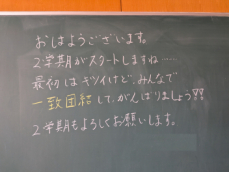 おはようございます。
2学期がスタートしますね……
最初はキツイけど、みんなで
一致団結して、がんばりましょう!!
2学期もよろしくお願いします。